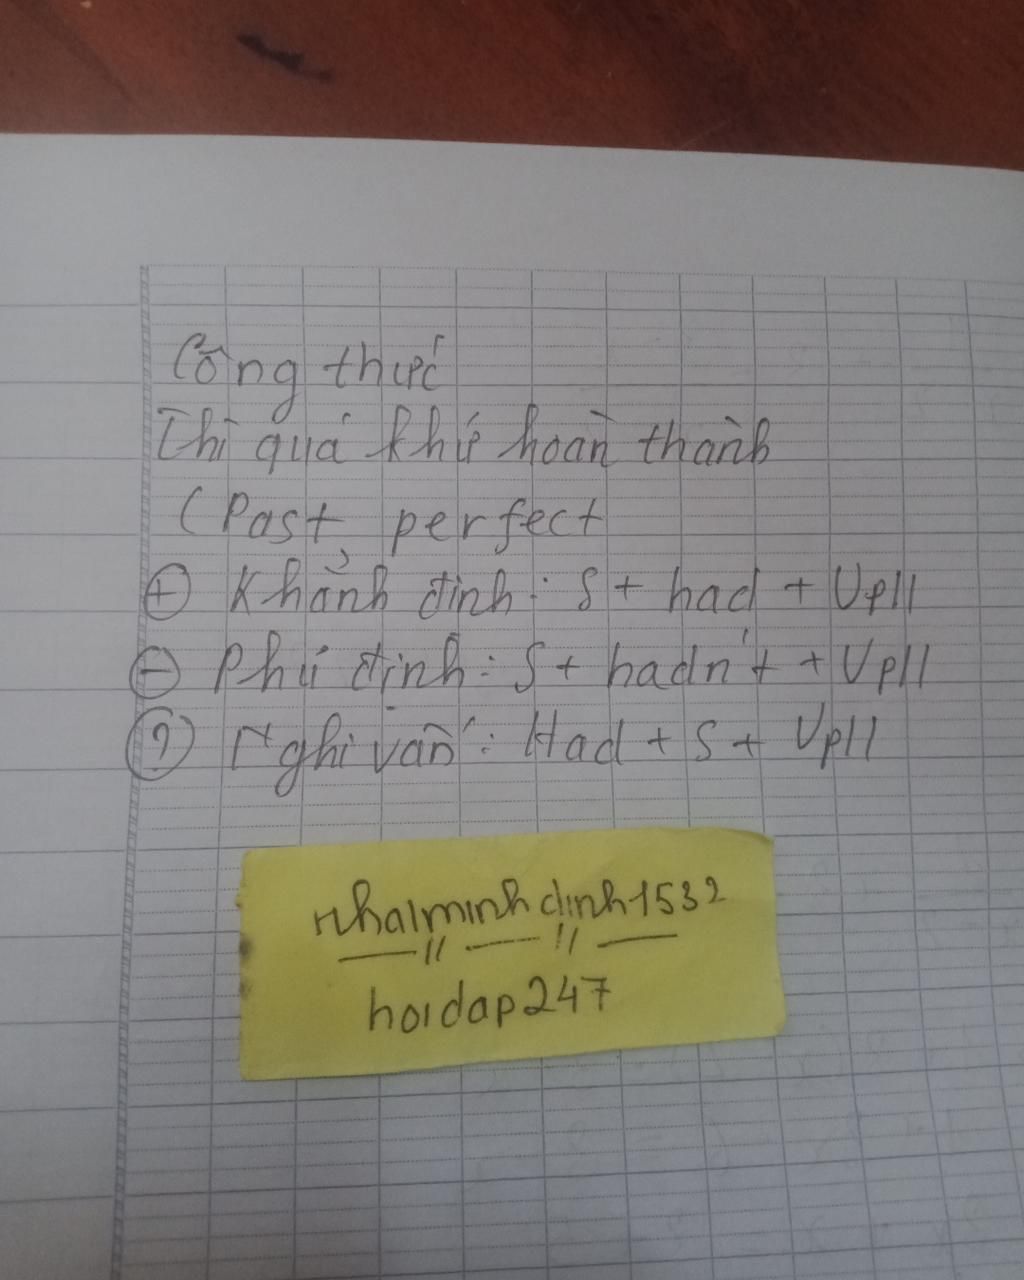 Công thức
Thì quá khứ hoàn thành
(Past perfect
+ Khẳnh định: S + had + VpII
- Phủ định: S + hadn't + VpII
? Nghi vấn: Had + S + VpII
nhatminhdinh1532
hoidap247